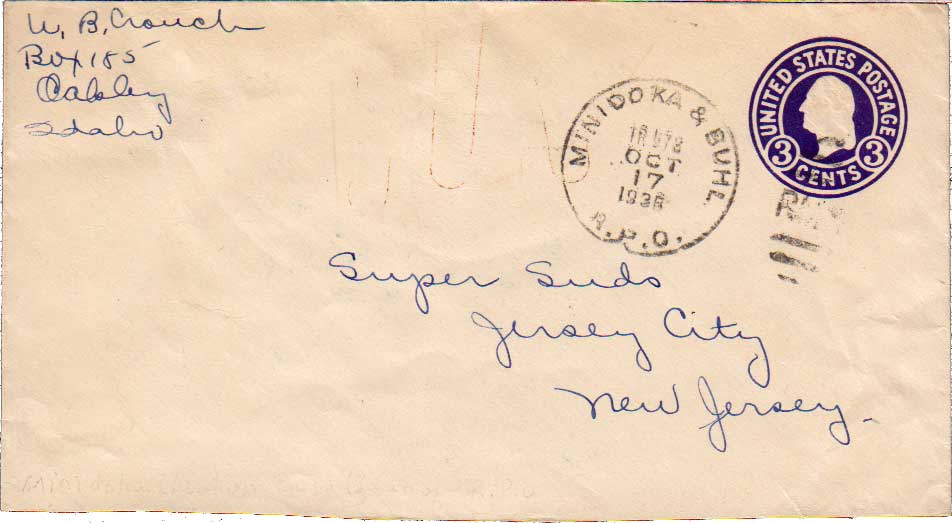 W. B. Crouch
Box 185
Oakley
Idaho
MINIDOKA & BUHL
OCT
17
1936
R.P.O.
UNITED STATES POSTAGE
3 CENTS 3
Super Suds
Jersey City
New Jersey